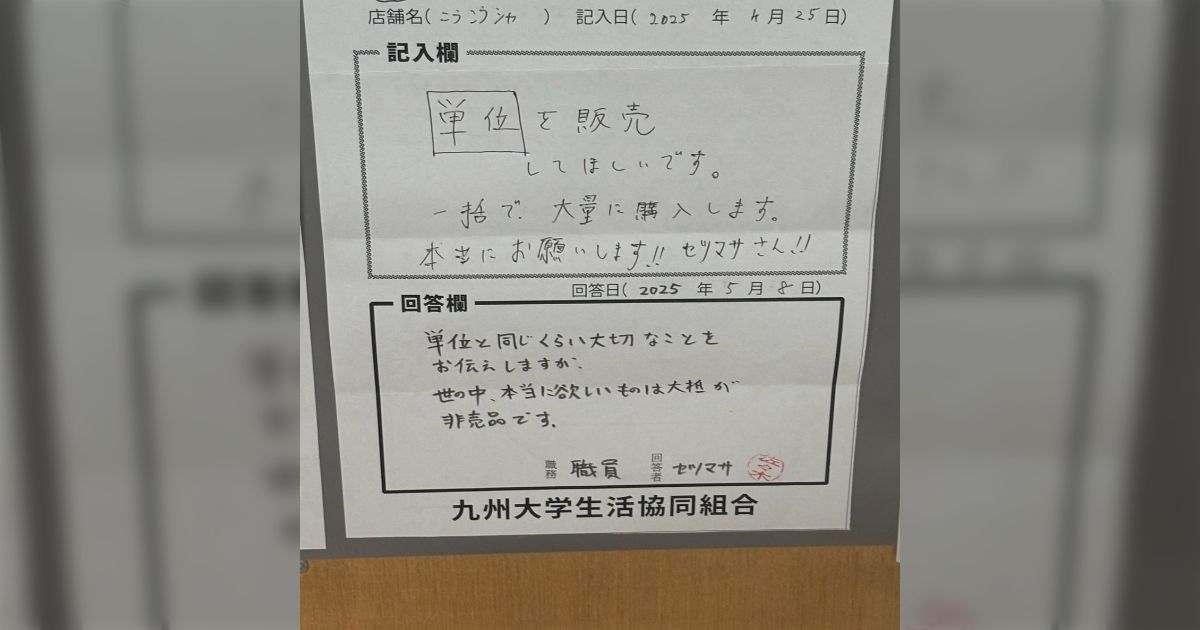 店舗名(こうこうシャ) 記入日(2025年4月25日)
記入欄
単位を販売
してほしいです。
一括で、大量に購入します。
本当にお願いします!! セツマサさん!!
回答日(2025年5月8日)
回答欄
単位と同じくらい大切なことを
お伝えしますが、
世の中、本当に欲しいものは大抵が
非売品です。
職務 職員 回答者 セツマサ 佐々木
九州大学生活協同組合